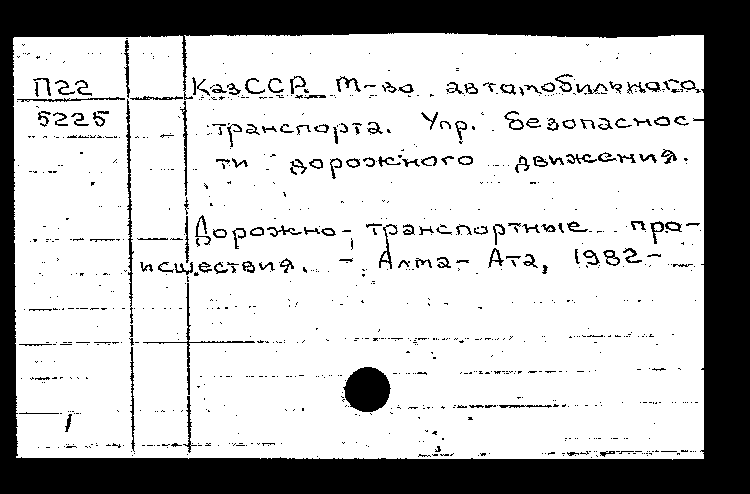 П22
5225
КазССР. М-во автомобильного
транспорта. Упр. безопаснос-
ти дорожного движения.
Дорожно-транспортные про-
исшествия. - Алма-Ата, 1982-
1